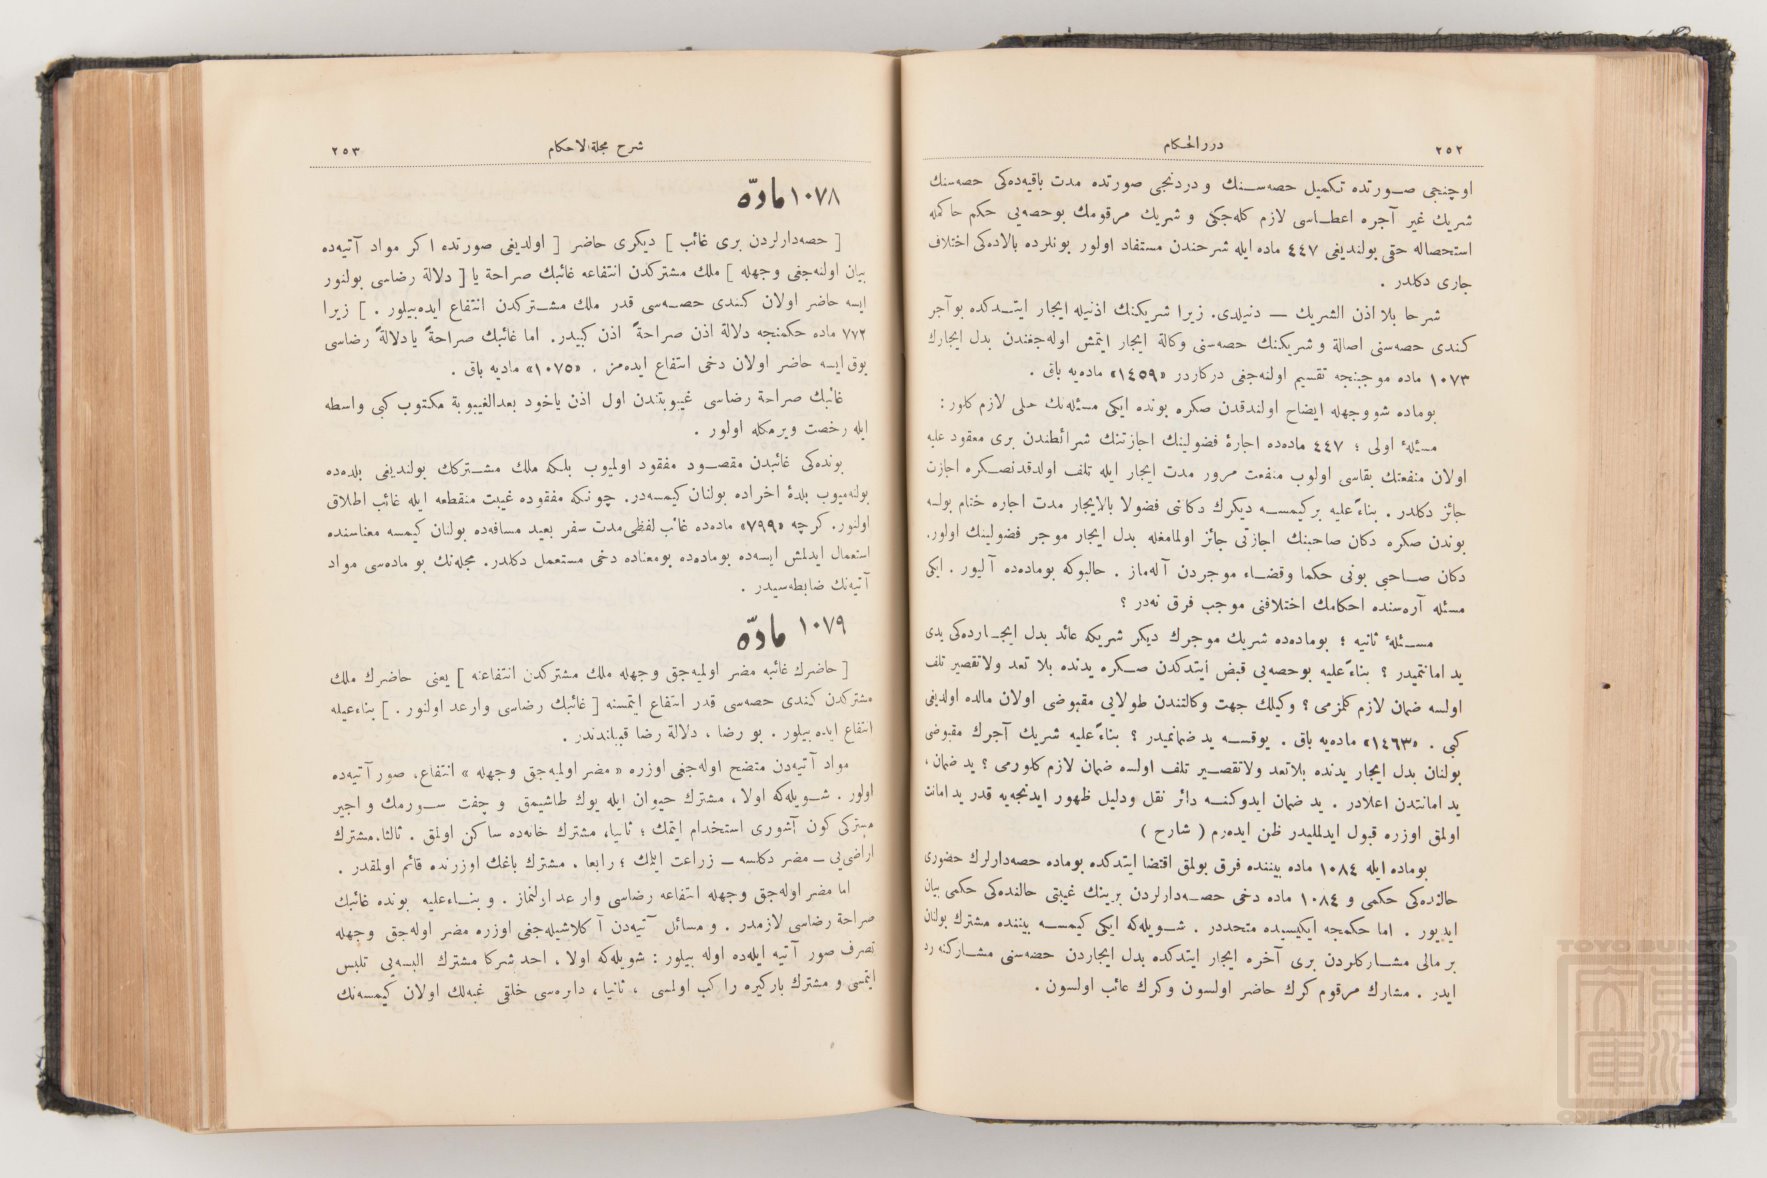 ٢٥٢
دررالحكام
اوچنجى صورتده تكميل حصه‌سنك و دردنجى صورتده مدت باقيه‌ده‌كى حصه‌سنك
شريك غير آجره اعطاسى لازم كله‌جكى و شريك مرقومك بوحصه‌يى حكم حاكمله
استحصاله حقى بولنديغى ٤٤٧ ماده ايله شرحندن مستفاد اولور بونلرده بالاده‌كى اختلاف
جارى دكلدر .
شرحا بلا اذن الشريك — دنيلدى. زيرا شريكنك اذنيله ايجار ايتدكده بوآجر
كندى حصه‌سنى اصالة و شريكنك حصه‌سنى وكالة ايجار ايتمش اوله‌جغندن بدل ايجارك
١٠٧٣ ماده موجبنجه تقسيم اولنه‌جغى دركاردر «١٤٥٩» ماده‌يه باق .
بوماده شووجهله ايضاح اولندقدن صكره بونده ايكى مسئله‌نك حلى لازم كلور :
مسئلهٔ اولى ؛ ٤٤٧ ماده‌ده اجارهٔ فضولينك اجازتنك شرائطندن برى معقود عليه
اولان منفعتك بقاسى اولوب منفعت مرور مدت ايجار ايله تلف اولدقدنصكره اجازت
جائز دكلدر . بناءً عليه بركيمسه ديكرك دكاننى فضولا بالايجار مدت اجاره ختام بولسه
بوندن صكره دكان صاحبنك اجازتى جائز اولمامغله بدل ايجار موجر فضولينك اولور.
دكان صاحبى بونى حكما وقضاء موجردن آله‌ماز . حالبوكه بوماده‌ده آليور . ايكى
مسئله آره‌سنده احكامك اختلافنى موجب فرق نه‌در ؟
مسئلهٔ ثانيه ؛ بوماده‌ده شريك موجرك ديكر شريكه عائد بدل ايجارده‌كى يدى
يد امانتميدر ؟ بناءً عليه بوحصه‌يى قبض ايتدكدن صكره يدنده بلا تعد ولاتقصير تلف
اولسه ضمان لازم كلمزمى ؟ وكيلك جهت وكالتندن طولايى مقبوضى اولان مالده اولديغى
كبى . «١٤٦٣» ماده‌يه باق . يوقسه يد ضمانميدر ؟ بناءً عليه شريك آجرك مقبوضى
بولنان بدل ايجار يدنده بلاتعد ولاتقصير تلف اولسه ضمان لازم كلورمى ؟ يد ضمان،
يد امانتدن اعلادر . يد ضمان ايدوكنه دائر نقل ودليل ظهور ايدنجه‌يه قدر يد امانت
اولمق اوزره قبول ايدلمليدر ظن ايده‌رم ( شارح )
بوماده ايله ١٠٨٤ ماده بيننده فرق بولمق اقتضا ايتدكده بوماده حصه‌دارلرك حضورى
حالنده‌كى حكمى و ١٠٨٤ ماده دخى حصه‌دارلردن برينك غيبتى حالنده‌كى حكمى بيان
ايديور . اما حكمجه ايكيسيده متحددر . شويله‌كه ايكى كيمسه بيننده مشترك بولنان
بر مالى مشاركلردن برى آخره ايجار ايتدكده بدل ايجاردن حصه‌سنى مشاركنه رد
ايدر . مشارك مرقوم كرك حاضر اولسون وكرك غائب اولسون .
شرح مجلة الاحكام
٢٥٣
١٠٧٨ مادّه
[ حصه‌دارلردن برى غائب ] ديكرى حاضر [ اولديغى صورتده اكر مواد آتيه‌ده
بيان اولنه‌جغى وجهله ] ملك مشتركدن انتفاعه غائبك صراحة يا [ دلالة رضاسى بولنور
ايسه حاضر اولان كندى حصه‌سى قدر ملك مشتركدن انتفاع ايده‌بيلور . ] زيرا
٧٧٢ ماده حكمنجه دلالة اذن صراحةً اذن كبيدر. اما غائبك صراحةً يادلالةً رضاسى
يوق ايسه حاضر اولان دخى انتفاع ايده‌مز . «١٠٧٥» ماديه باق .
غائبك صراحة رضاسى غيبوبتندن اول اذن ياخود بعدالغيبوبة مكتوب كبى واسطه
ايله رخصت ويرمكله اولور .
بونده‌كى غائبدن مقصود مفقود اولميوب بلكه ملك مشتركك بولنديغى بلده‌ده
بولنه‌ميوب بلدهٔ اخراده بولنان كيمسه‌در. چونكه مفقوده غيبت منقطعه ايله غائب اطلاق
اولنور. كرچه «٧٩٩» ماده‌ده غائب لفظى مدت سفر بعيد مسافه‌ده بولنان كيمسه معناسنده
استعمال ايدلمش ايسه‌ده بوماده‌ده بومعناده دخى مستعمل دكلدر. مجله‌نك بو ماده‌سى مواد
آتيه‌نك ضابطه‌سيدر .
١٠٧٩ مادّه
[ حاضرك غائبه مضر اولميه‌جق وجهله ملك مشتركدن انتفاعنه ] يعنى حاضرك ملك
مشتركدن كندى حصه‌سى قدر انتفاع ايتمسنه [ غائبك رضاسى وارعد اولنور . ] بناءعليه
انتفاع ايده بيلور . بو رضا ، دلالة رضا قبيلندندر .
مواد آتيه‌دن متضح اوله‌جغى اوزره « مضر اولميه‌جق وجهله » انتفاع، صور آتيه‌ده
اولور . شويله‌كه اولا ، مشترك حيوان ايله يوك طاشيمق و چفت سورمك و اجير
مشتركى كون آشورى استخدام ايتمك ؛ ثانيا، مشترك خانه‌ده ساكن اولمق . ثالثا، مشترك
اراضى‌يى — مضر دكلسه — زراعت ايتمك ؛ رابعا ، مشترك باغك اوزرنده قائم اولمقدر .
اما مضر اوله‌جق وجهله انتفاعه رضاسى وار عد اولنماز . و بناءعليه بونده غائبك
صراحة رضاسى لازمدر . و مسائل آتيه‌دن آكلاشيله‌جغى اوزره مضر اوله‌جق وجهله
تصرف صور آتيه ايله‌ده اوله بيلور : شويله‌كه اولا ، احد شركا مشترك البسه‌يى تلبس
ايتمسى و مشترك باركيره راكب اولمسى ، ثانيا ، داره‌سى خلقى غبه‌لك اولان كيمسه‌نك